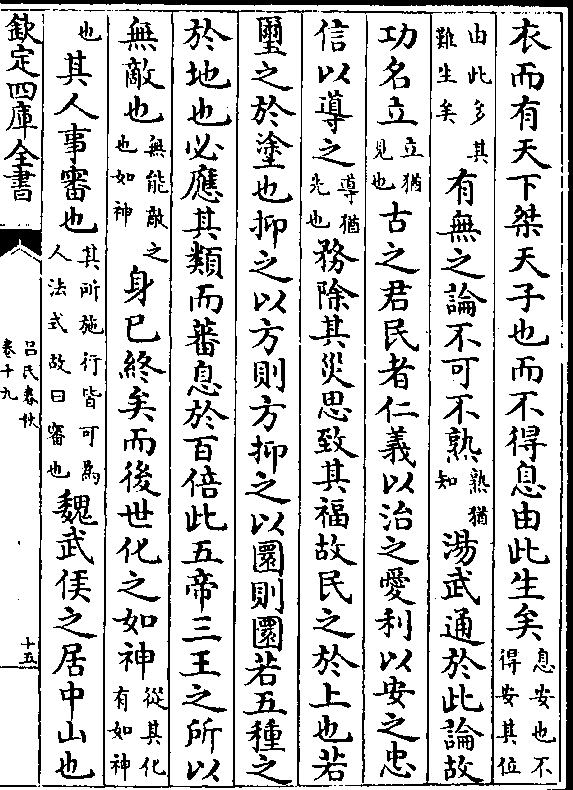 衣而有天下桀天子也而不得息由此生矣息安也不得安其位
由此多其難生矣有無之論不可不熟熟猶知湯武通於此論故
功名立立猶見也古之君民者仁義以治之愛利以安之忠
信以導之導猶先也務除其災思致其福故民之於上也若
璽之於塗也抑之以方則方抑之以圜則圜若五種之
於地也必應其類而蕃息於百倍此五帝三王之所以
無敵也無能敵之也如神身已終矣而後世化之如神從其化有如神
也其人事審也其所施行皆可為人法式故曰審也魏武侯之居中山也
欽定四庫全書
呂氏春秋
卷十九
十五